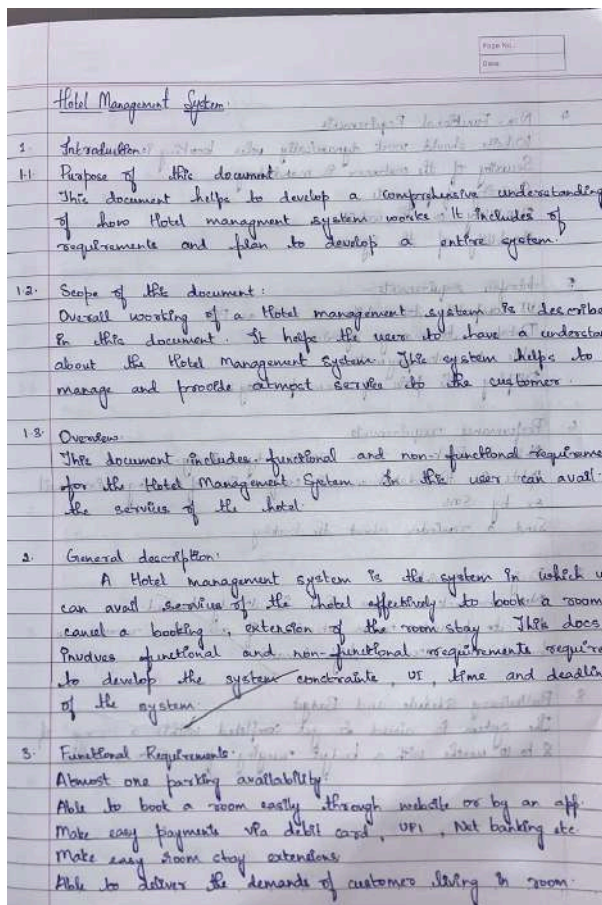 Page No.:
Date:
Hotel Management System.
1. Introduction:
1.1. Purpose of this document
This document helps to develop a comprehensive understanding
of how Hotel managment system works. It includes of
requirements and plan to develop a entire system.
1.2. Scope of this document:
Overall working of a Hotel management system is describe
in this document. It helps the user to have a understa
about the Hotel Management System. This system helps to
manage and provide atmost service to the customer.
1.3. Overview.
This document includes functional and non-functional requireme
for the Hotel Management System. In this user can avail
the services of the hotel.
2. General description:
A Hotel management system is the system in which u
can avail services of the hotel effectively to book a room
cancel a booking, extension of the room stay. This docs
involves functional and non-functional requirements require
to develop the system constraints, UI, time and deadlin
of the system.
3. Functional Requirements.
Atmost one parking availability.
Able to book a room easily through website or by an app.
Make easy payments via debit card, UPI, Net banking etc.
Make easy room stay extensions
Able to deliver the demands of customer living in room.